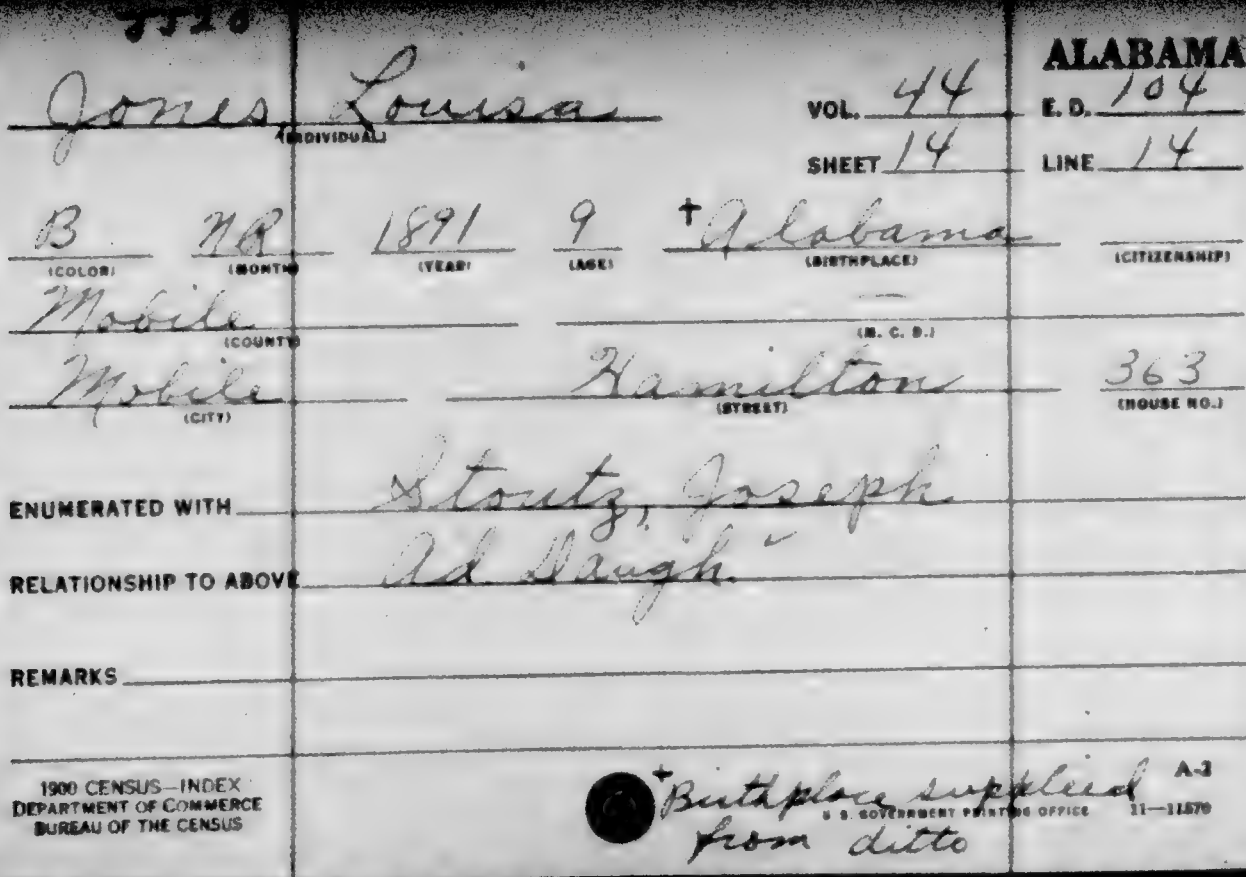 ALABAMA
Jones, Louisa VOL. 44 E. D. 104
(INDIVIDUAL)
SHEET 14 LINE 14
B NR 1891 9 †Alabama
(COLOR) (MONTH) (YEAR) (AGE) (BIRTHPLACE) (CITIZENSHIP)
Mobile —
(COUNTY) (M. C. D.)
Mobile Hamilton 363
(CITY) (STREET) (HOUSE NO.)
ENUMERATED WITH Stoutz, Joseph
RELATIONSHIP TO ABOVE Ad. Daugh.
REMARKS
1900 CENSUS—INDEX
DEPARTMENT OF COMMERCE
BUREAU OF THE CENSUS
†Birthplace supplied A-3
U. S. GOVERNMENT PRINTING OFFICE 11—11570
from ditto